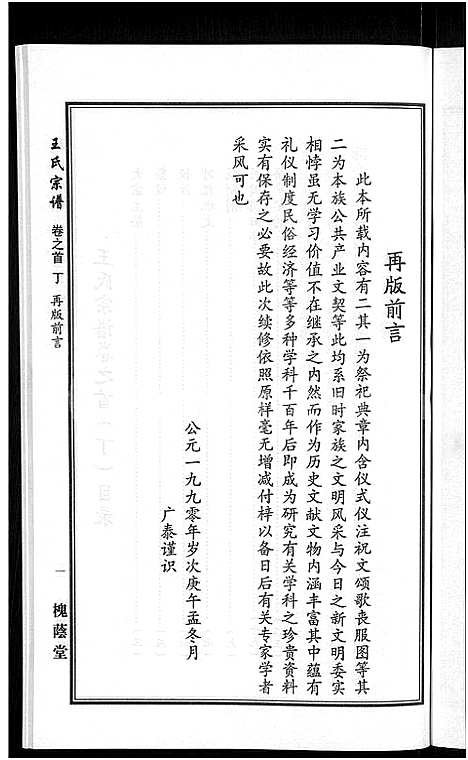 再版前言
此本所载内容有二其一为祭祀典章内含仪式仪注祝文颂歌丧服图等其
二为本族公共产业文契等此均系旧时家族之文明风采与今日之新文明委实
相悖虽无学习价值不在继承之内然而作为历史文献文物内涵丰富其中蕴有
礼仪制度民俗经济等等多种学科千百年后即成为研究有关学科之珍贵资料
实有保存之必要故此次续修依照原样毫无增减付梓以备日后有关专家学者
采风可也
公元一九九零年岁次庚午孟冬月
广泰谨识
王氏宗谱 卷之首 丁 再版前言
一 槐蔭堂